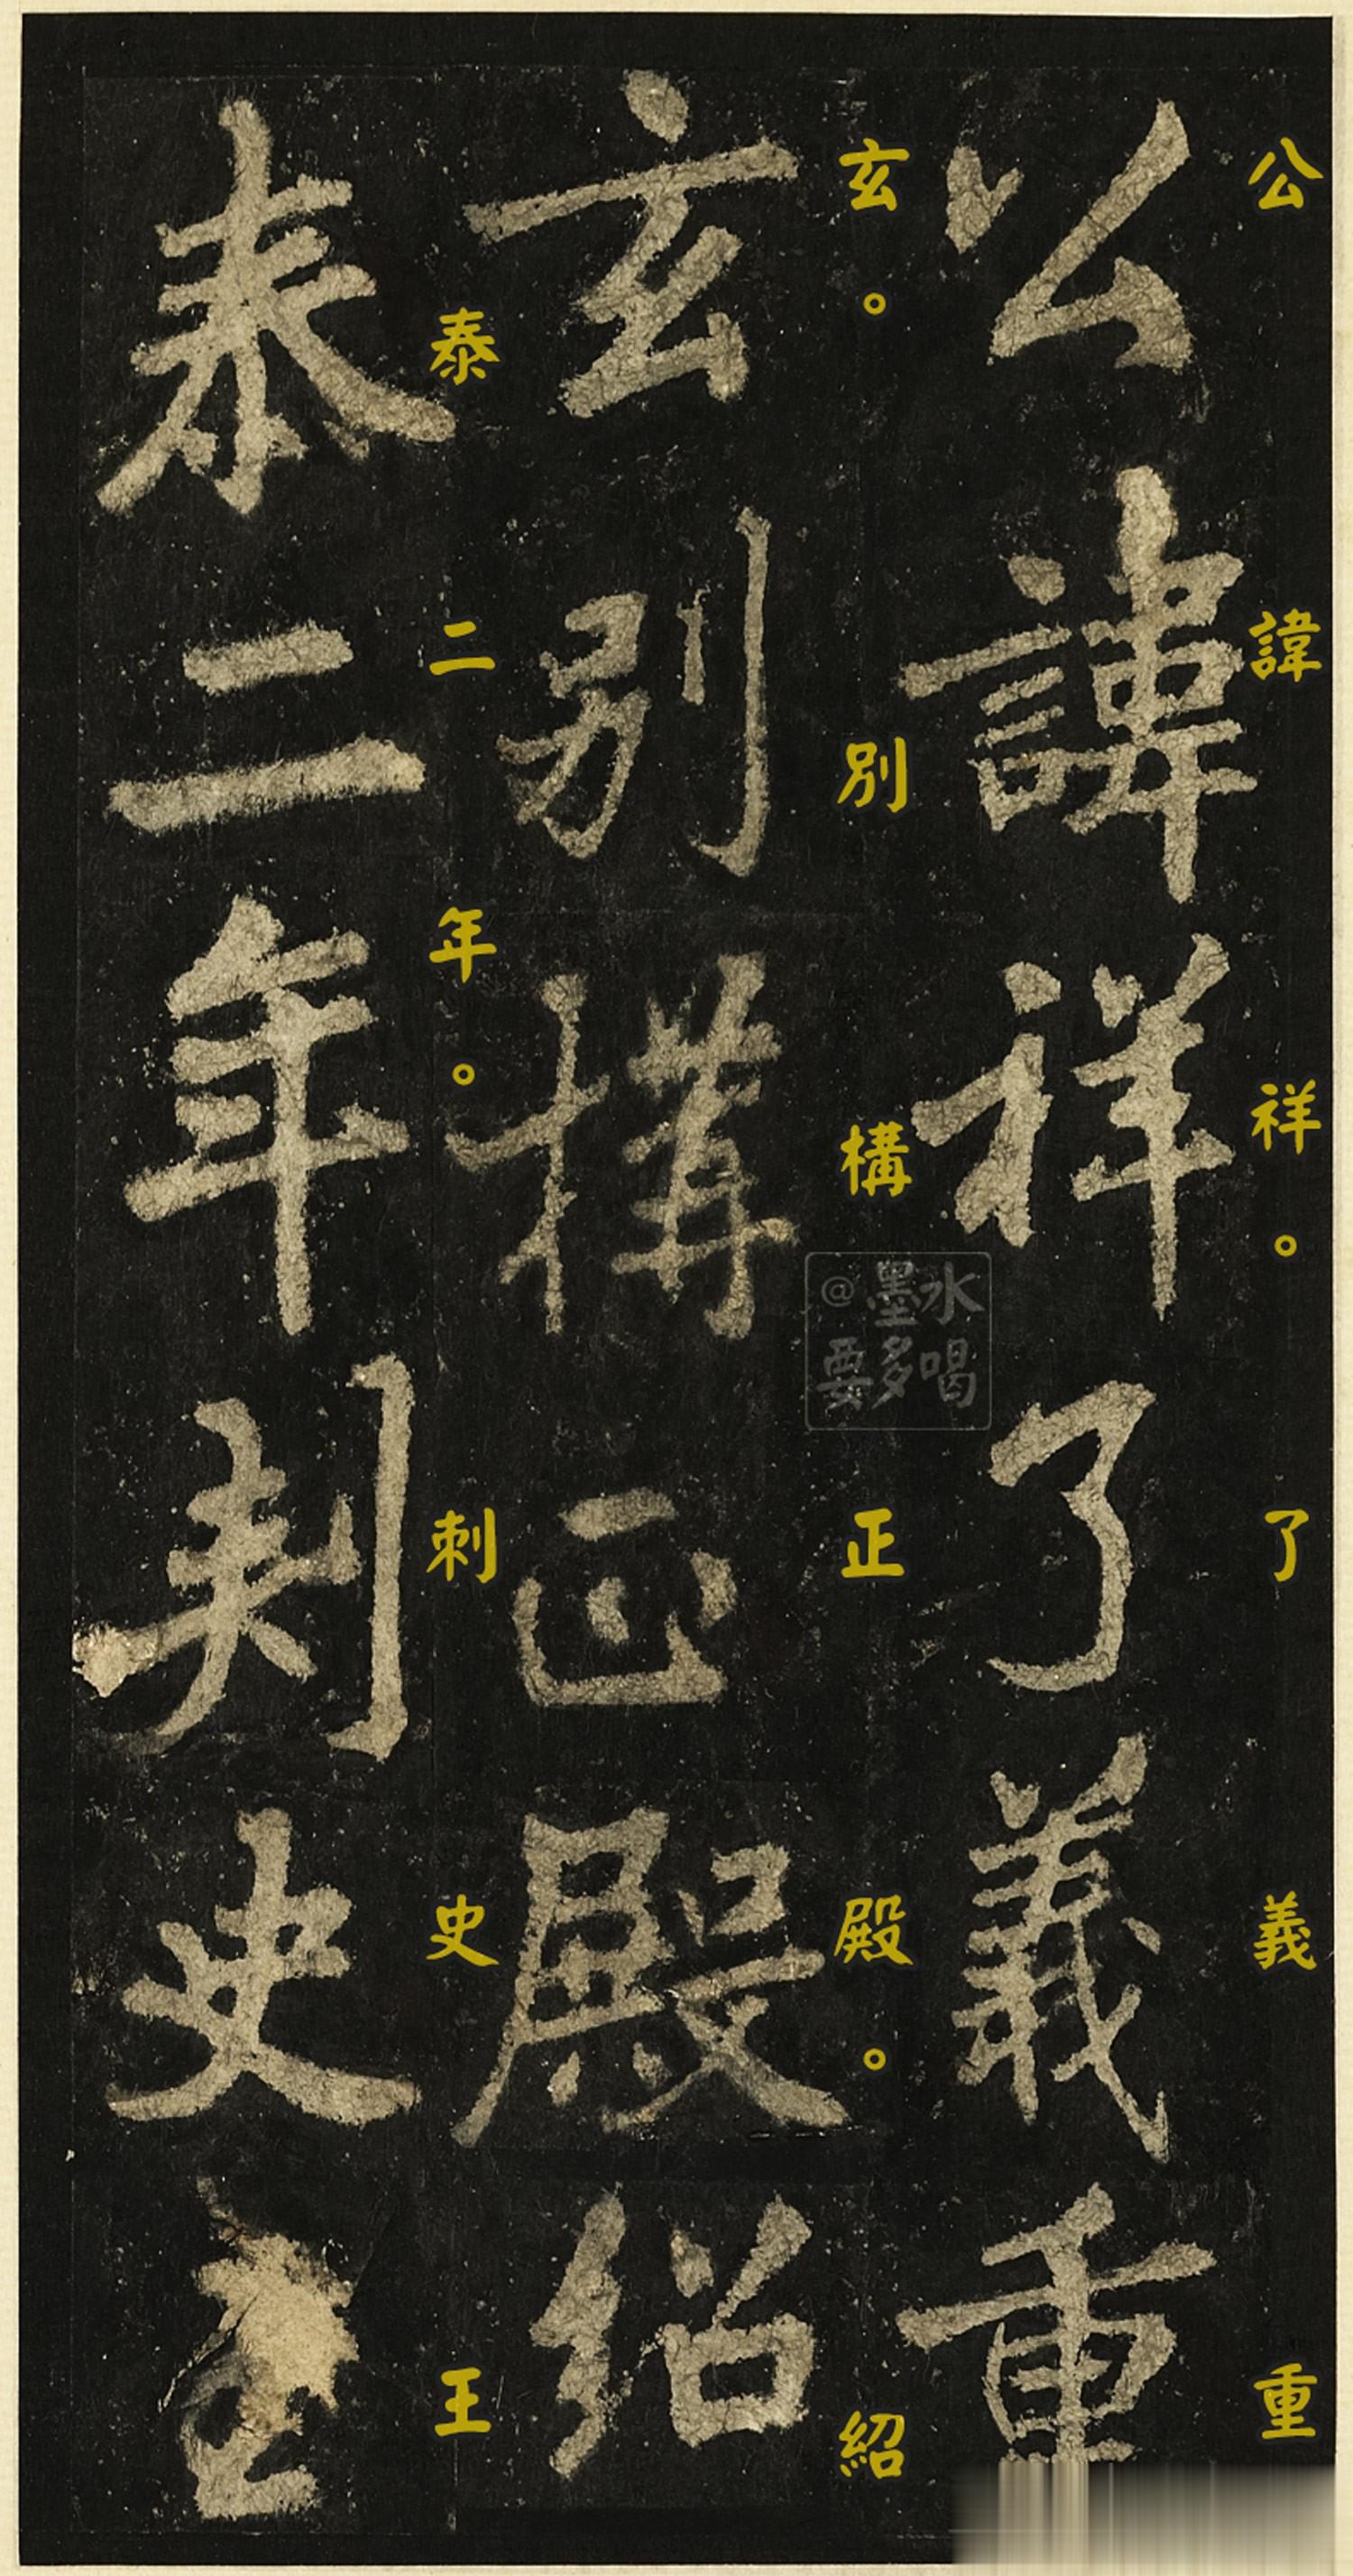 公諱祥。了義重
玄。別構正殿。紹
泰二年。刺史王
@墨水
要多喝